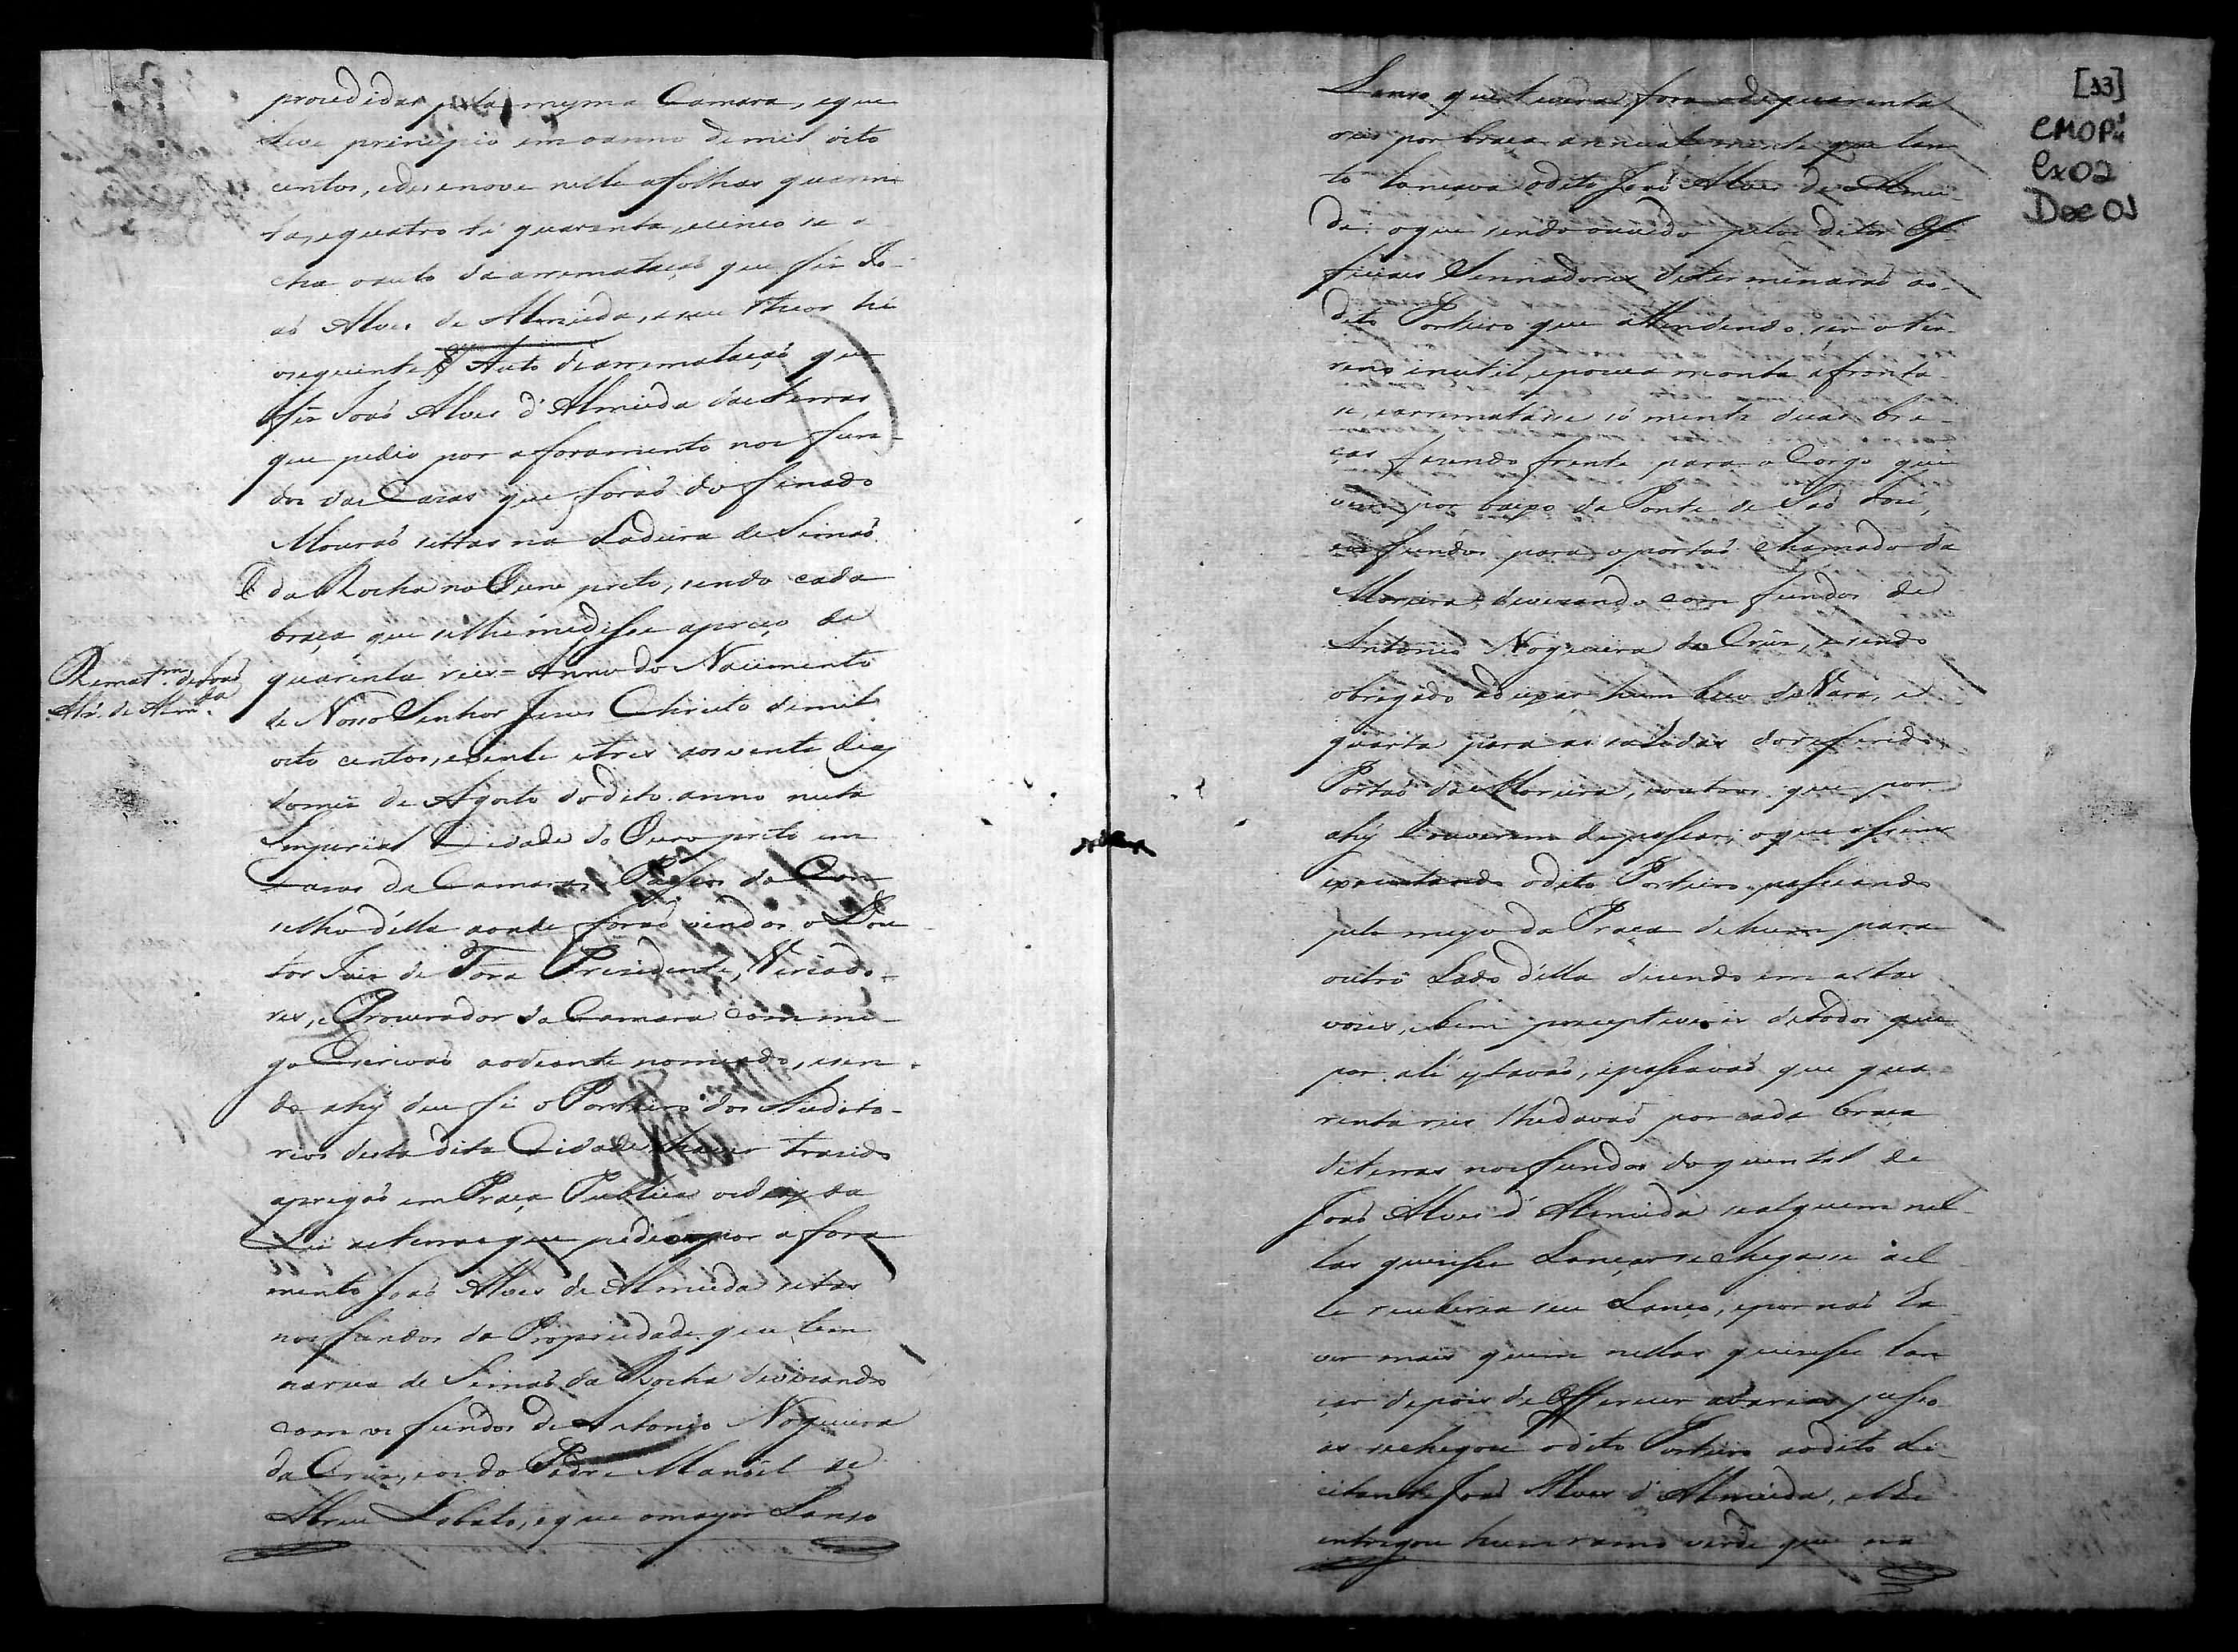 procedidas pela mesma Camara, eque
teve principio em oanno demil oito
centos, edesenove nelle afolhas quaren
ta, equatro té quarenta, ecinco se a
cha oauto da arremataçaõ que fês Jo-
aõ Alves de Almeida, eseu theor hé
oseguinte Auto dearremataçaõ que
fês Joaõ Alves d'Almeida dasterras
que pedio por aforamento nos fun-
dos das Casas que foraõ do finado
Mouraõ sittas na Ladeira de Simaõ
da Rocha no Ouro preto, sendo cada
braça que selhe medisse apreço de
quarenta reis = Anno do Nacimento
de Nosso Senhor Jesus Christo demil
oito centos, evinte etres aosvinte dias
domês de Agosto dodito anno nesta
Imperial Cidade do Ouro preto em
Casas da Camara, e Passos do Con
selho della aonde foraõ vindos o Dou
tor Juis de Fora Presidente, Veriado-
res, e Procurador da Camara comme-
go Escrivaõ aodiante nomeado, esen-
do ahy deu fé o Porteiro dos Audito-
rios desta dita Cidade haver trasido
apregaõ em Praça Publica osdias da
Lei asterras que pedio por afora
mento Joaõ Alves de Almeida sitas
nos fundos da Propriedade que tem
narua de Simaõ da Rocha devisando
com os fundos de Antonio Nogueira
da Crús, eos do Padre Manoel de
Abreu Lobato, eque omayor Lanso
Rematm. de Joaõ
Als. de Almda.
[33]
CMOP
Cx02
Doc 01
Lanso que tivera fora ode quarenta
reis por braça annualmente que tan
to lançava odito Joaõ Alves de Almei-
da: oque sendo ouvido pelos ditos Of-
ficiaes Sennadores determinaraõ ao-
dito Porteiro que attendendo ser o ter-
reno inutil, epouca monta afronta-
se, earrematasse só mente duas bra-
ças fasendo frente para o Corgo que
vem por baixo da Ponte de Saõ José,
eos fundos para oportaõ chamado da
Moreira, devisando com fundos de
Antonio Nogueira da Crús, esendo
obrigado adeixar hum beco de Vara, e
quarta para as sahidas doreferido
Portaõ da Moreira, eoutros que por
ahy houverem depassar; oque assim
executando odito Porteiro passeando
pelo meyo da Praça dehum para
outro Lado della disendo em altas
voses, bem perceptiveis detodos que
por ali estavaõ, epassavaõ que qua
renta reis lhedavaõ por cada braça
deterras nos fundos doquintal de
Joaõ Alves d'Almeida sealguem nel-
las quisesse Lançar sechegasse ael
le receberia seu Lanço, epor naõ ha
ver mais quem nellas quisesse lan
çar depois de offerecer avarias pesso
as sechegou odito Porteiro aodito Li
citante Joaõ Alves d'Almeida, elhe
entregou hum ramo verde que na